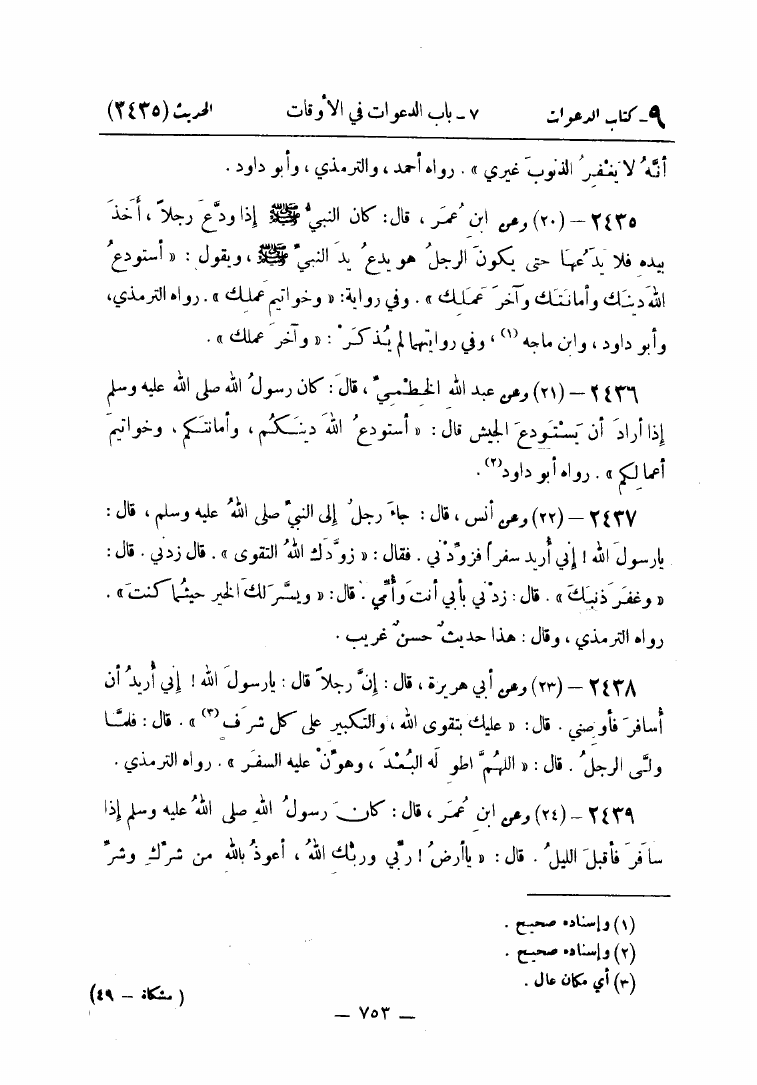 ٩ـ كتاب الدعوات ٧ ـ باب الدعوات في الأوقات الحديث (٢٤٣٥)
أنَّهُ لا يَغْفِرُ الذنوبَ غيري » . رواه أحمد ، والترمذي ، وأبو داود .
٢٤٣٥ – (٢٠) وعن ابنِ عُمَر ، قال: كان النبيُّ ﷺ إذا ودَّعَ رجلاً ، أخذَ
بيدهِ فلا يَدَعُها حتى يكونَ الرجلُ هو يدعُ يدَ النبيِّ ﷺ ، ويقول : « أستودعُ
اللهَ دينَك وأمانتَك وآخرَ عَمَلِك » . وفي رواية: « وخواتيم عملِك » . رواه الترمذي،
وأبو داود ، وابن ماجه (١) ، وفي روايتهما لم يُذكَرْ : « وآخرَ عملك » .
٢٤٣٦ – (٢١) وعن عبد الله الخِطْميِّ ، قالَ: كان رسولُ الله صلى الله عليه وسلم
إذا أرادَ أن يَسْتَودعَ الجيش قال : « أستودعُ اللهَ دينَكُم ، وأمانتَكم ، وخواتيمَ
أعمالِكم » . رواه أبو داود (٢) .
٢٤٣٧ – (٢٢) وعن أنس ، قال : جاءَ رجلٌ إلى النبيِّ صلى اللهُ عليه وسلم ، قال :
يارسولَ الله ! إني أُريد سفراً فزوِّدْني . فقال : « زوَّدَك اللهُ التقوى » . قال زدني . قال :
« وغفرَ ذنبَكَ » . قال : زدْني بأبي أنتَ وأُمِّي . قال: « ويسَّرَ لكَ الخير حيثُما كنتَ » .
رواه الترمذي ، وقال : هذا حديثٌ حسنٌ غريب .
٢٤٣٨ – (٢٣) وعن أبي هريرة ، قال : إنَّ رجلاً قال : يارسولَ الله ! إني أُريدُ أن
أُسافرَ فأوصِني . قال : « عليك بتقوى الله ، والتكبيرِ على كل شرَفٍ (٣) » . قال : فلمَّا
ولَّى الرجلُ . قال : « اللهُمَّ اطوِ له البُعْدَ ، وهوِّنْ عليه السفَر » . رواه الترمذي .
٢٤٣٩ – (٢٤) وعن ابنِ عُمَر ، قال : كانَ رسولُ اللهِ صلى اللهُ عليه وسلم إذا
سافَرَ فأقبلَ الليلُ . قال : « ياأرضُ ! ربِّي وربُّكِ اللهُ ، أعوذُ بالله من شرِّكِ وشرِّ
(١) وإسناده صحيح .
(٢) وإسناده صحيح .
(٣) أي مكان عال .
( مشكاة – ٤٩)
— ٧٥٣ —